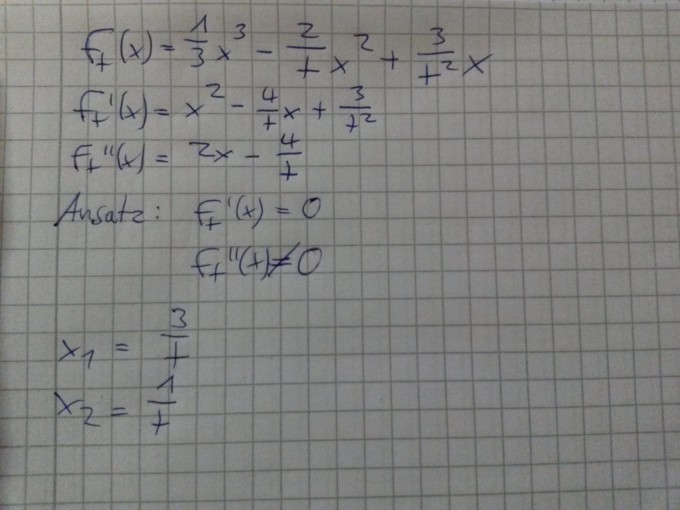 f_t(x) = 1/3 x³ - 2/t x² + 3/t² x
f_t'(x) = x² - 4/t x + 3/t²
f_t''(x) = 2x - 4/t
Ansatz: f_t'(x) = 0
f_t''(x) ≠ 0
x₁ = 3/t
x₂ = 1/t